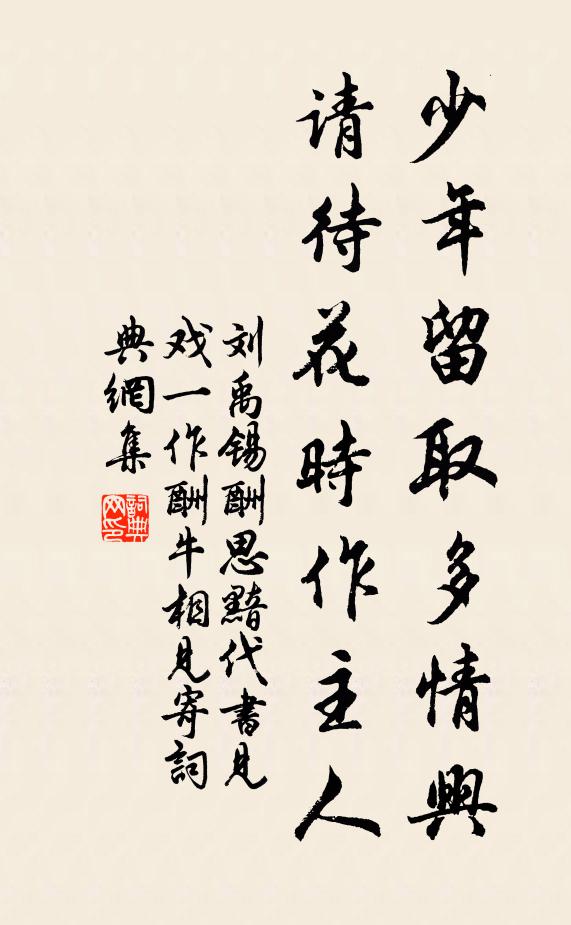 少年留取多情興
请待花時作主人
刘禹锡酬思黯代書見
戏一作酬牛相見寄詞
典網集
詞典网印